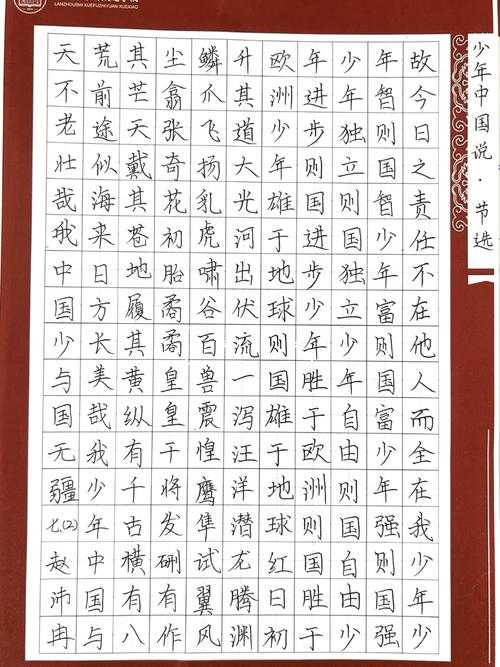 LANZHOUSHI XUEFUZHIYUAN XUEXIAO
少年中国说·节选
故今日之责任不在他人而全在我少年少
年智则国智少年富则国富少年强则国强
少年独立则国独立少年自由则国自由少
年进步则国进步少年胜于欧洲则国胜于
欧洲少年雄于地球则国雄于地球红日初
升其道大光河出伏流一泻汪洋潜龙腾渊
鳞爪飞扬乳虎啸谷百兽震惶鹰隼试翼风
尘翕张奇花初胎矞矞皇皇干将发硎有作
其芒天戴其苍地履其黄纵有千古横有八
荒前途似海来日方长美哉我少年中国与
天不老壮哉我中国少与国无疆七(2)赵沛冉